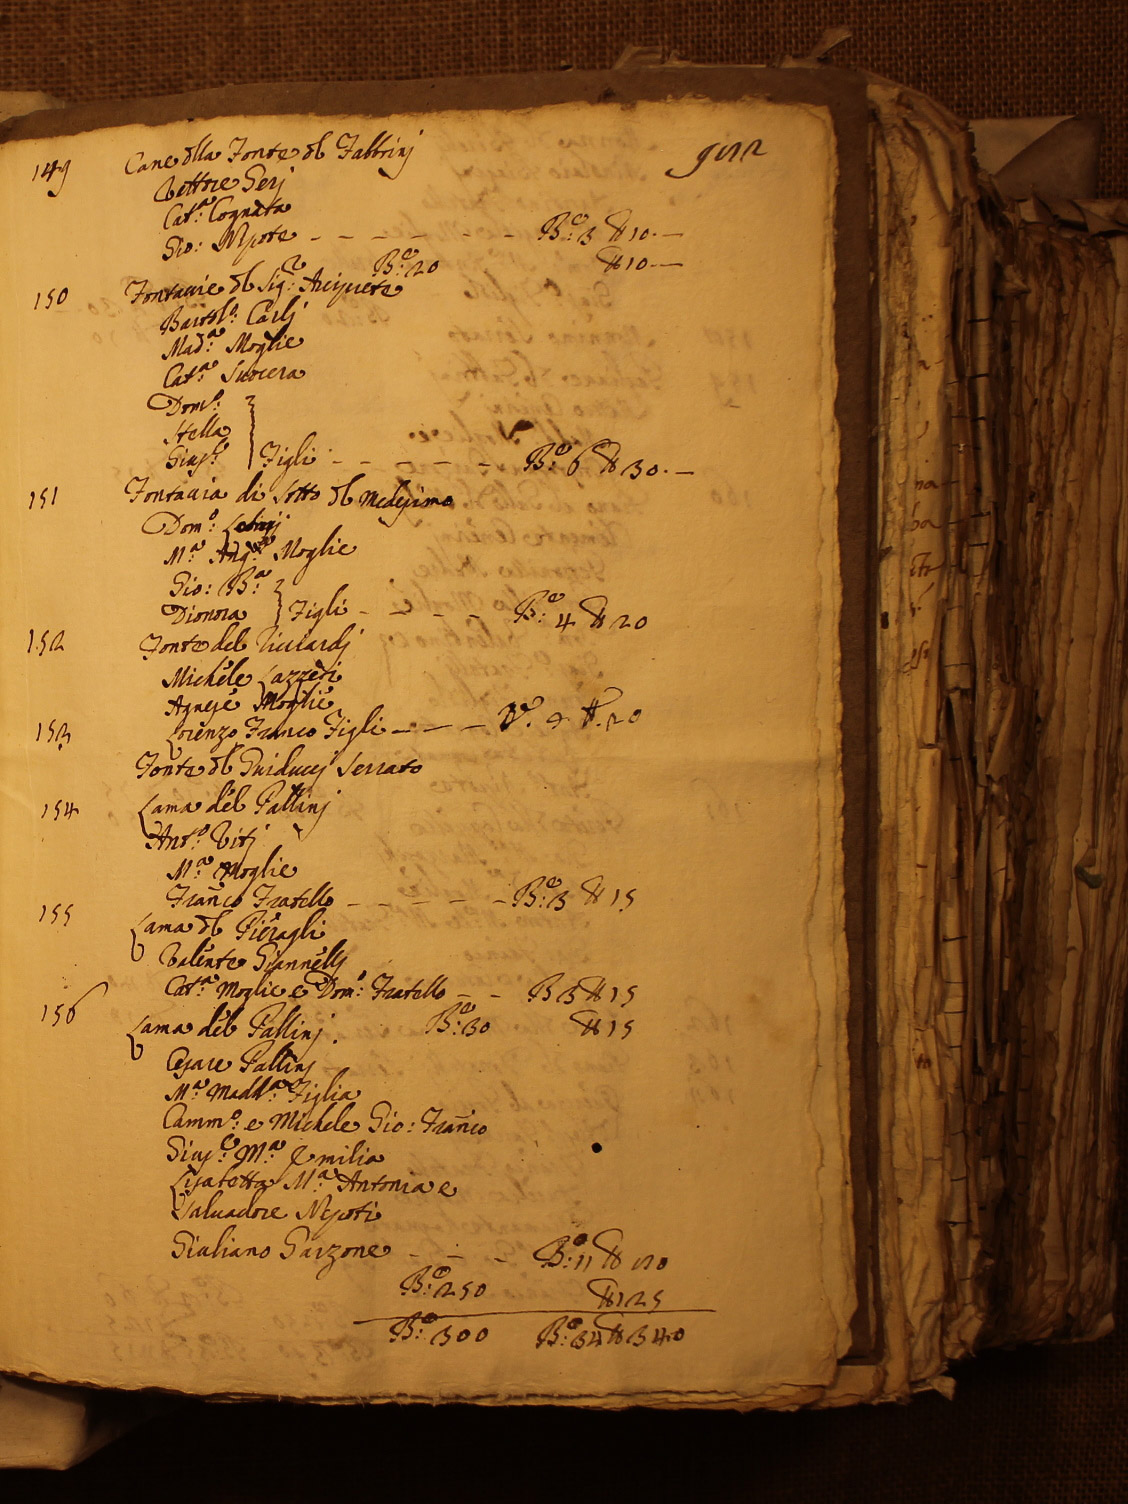 149 Cane dlla Fonte dl Fabbrinj
Vettorie Serj
Cat.a Cognata
Gio: Nipote - - - - - - B:e 3 # 10.—
B:e 20 # 10—
150 Fontacie dl Sig.r
Bartol.o Carlj
Mad.a Moglie
Cat.a Suocera
Dom.o
Stella
Giusp.e Figli - - - - - B:e 6 # 30.—
151 Fontacia di Sotto dl medesimo
Dom.o:
M.a Ang.a Moglie
Gio: B.a
Dionora Figli - - - - B:e 4 # 20
152 Fonte del Ricciardj
Michele Lazzeri
Agnese Moglie
153 Lorenzo Franco Figli - - - - 4 #. 20
Fonte dl Guiduccj Serrato
154 Lama del Pallinj
Ant.o Vitj
M.a Moglie
Franco Fratello - - - - - B:e 3 # 15
155 Lama dl Pieragli
Valente Giannellj
Cat.a Moglie e Dom.o: Fratello - - B 3 # 15
156 Lama del Pallinj. B:e 30 # 15
Cesare Pallinj
M.a Madd.a Figlia
Camm.o: e Michele Gio: Franco
Giuse.e M.a Emilia
Lisabetta M.a Antonia e
Salvadore Nipoti
Giuliano Garzone - - - B:e 11 #
B:e 250 # 125
B:e 300 B:e 34 # 340